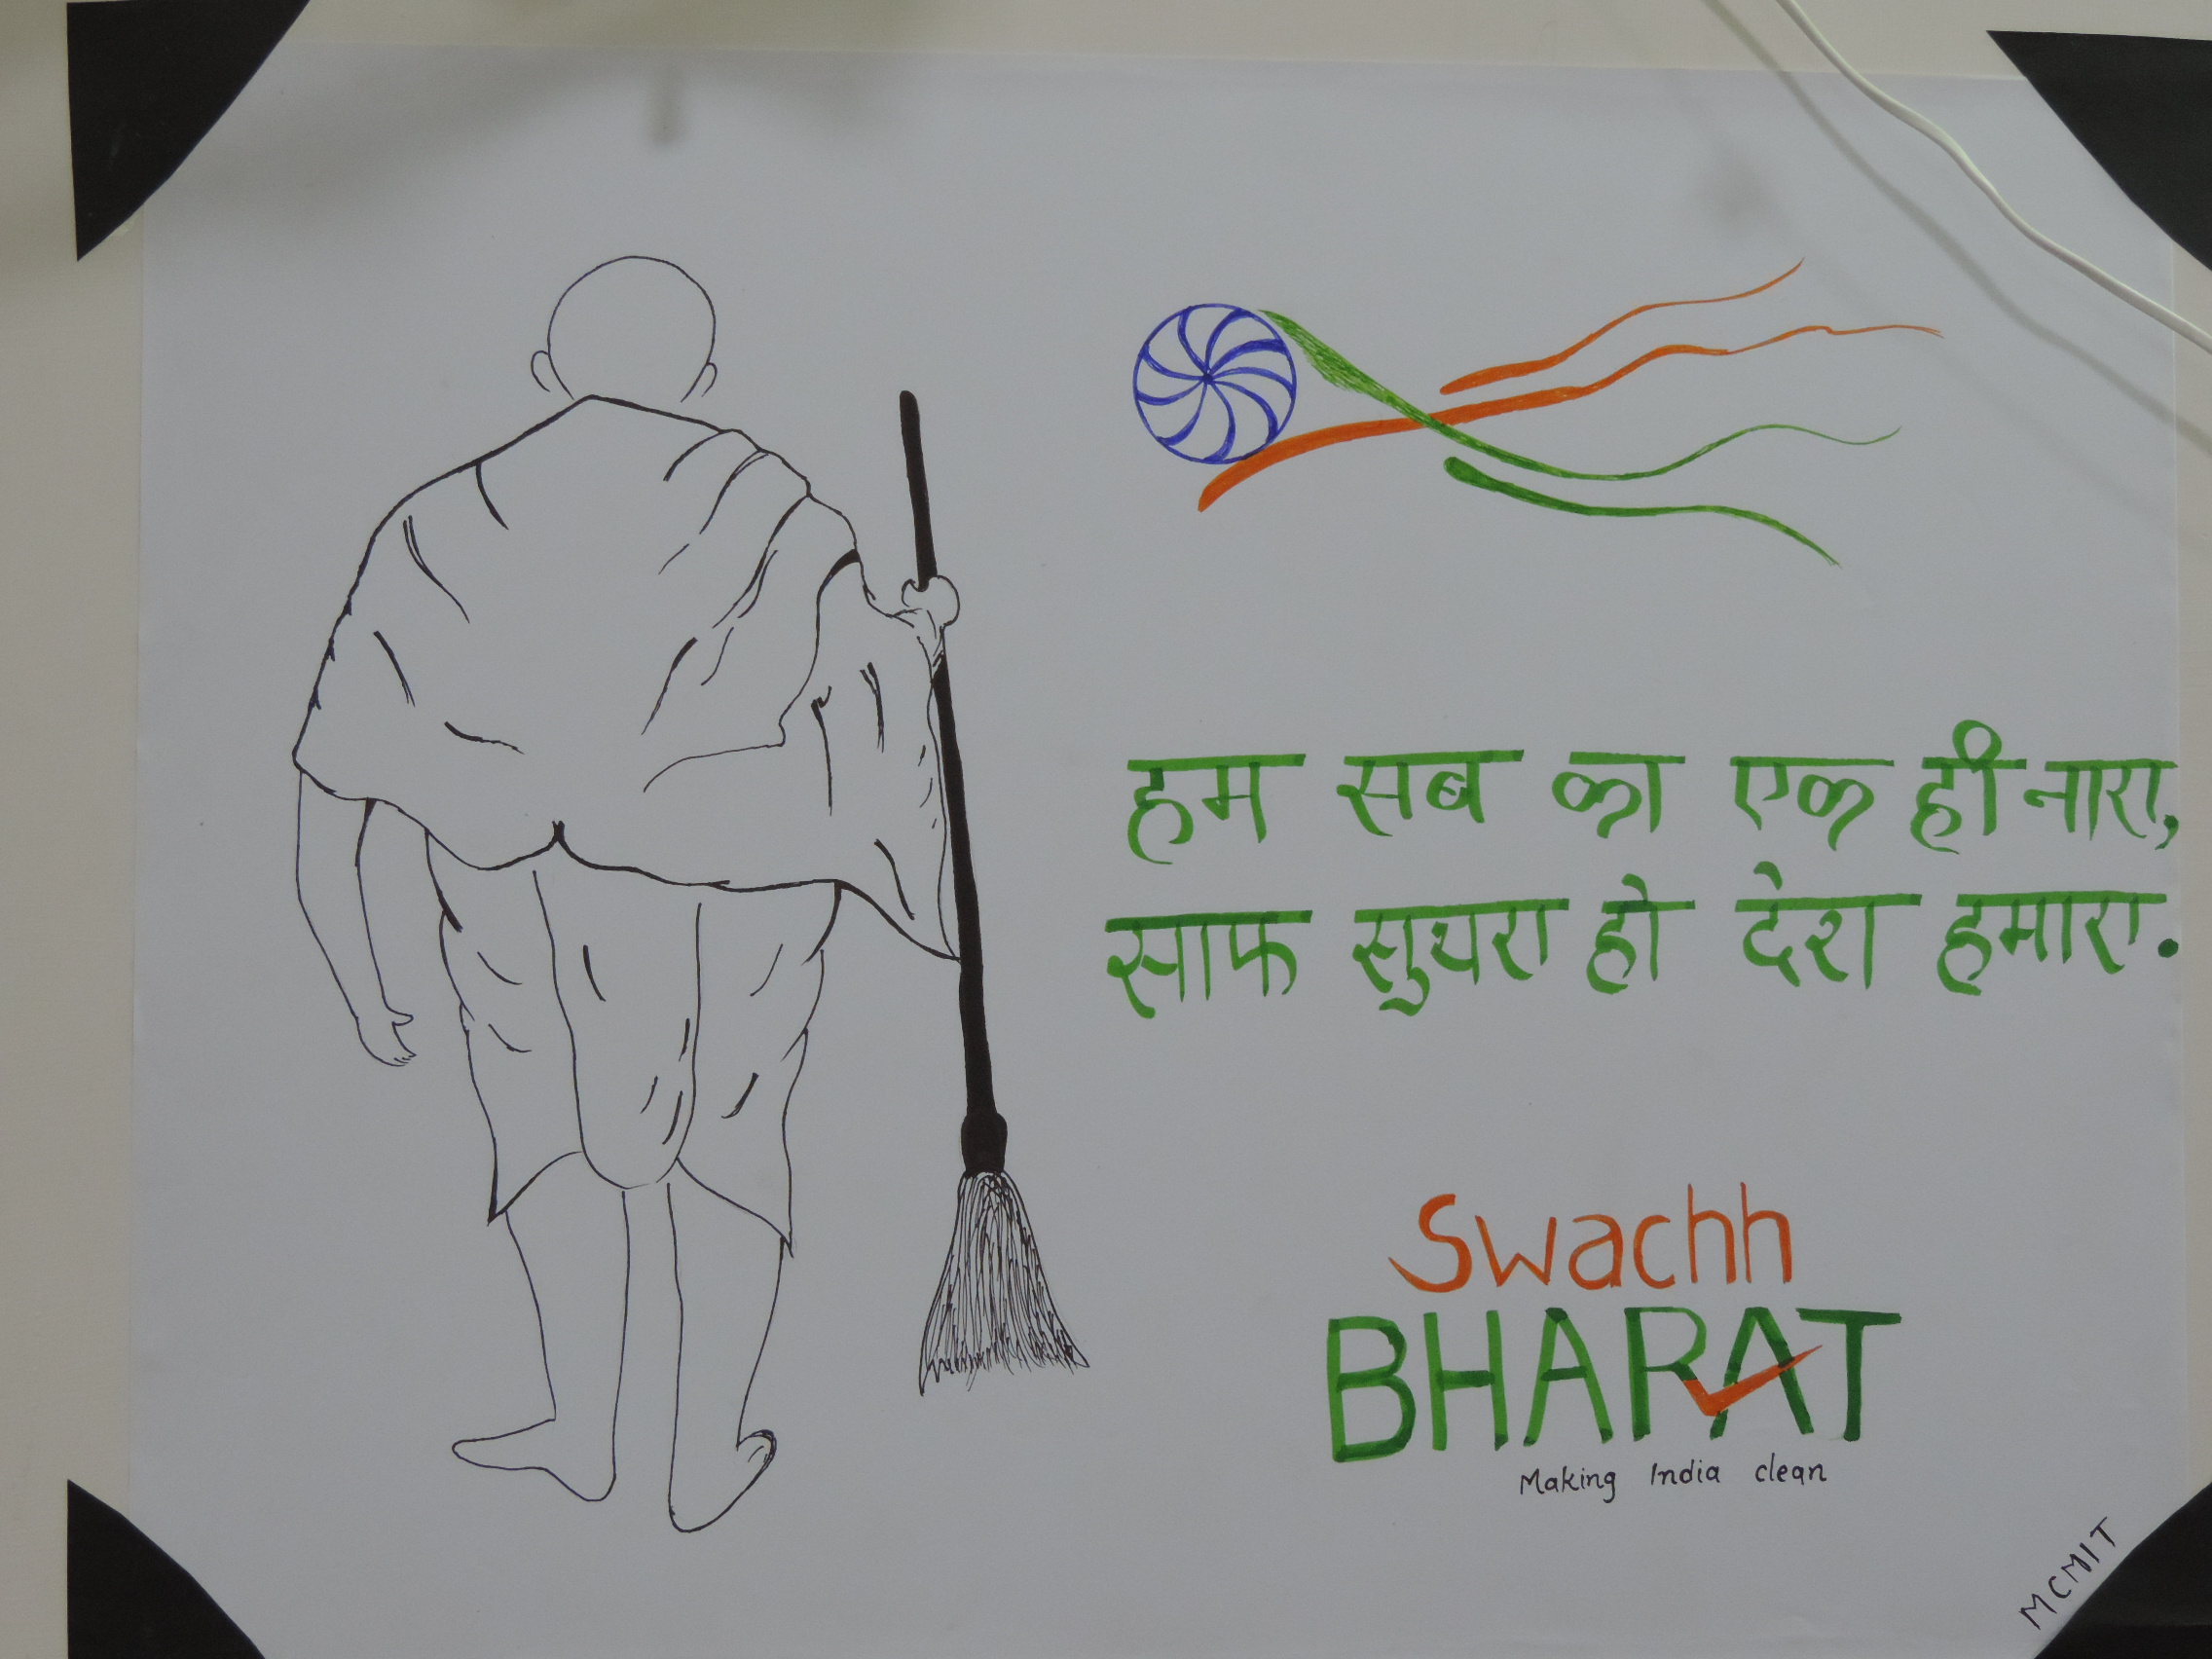 हम सब का एक ही नारा,
साफ सुथरा हो देश हमारा.
Swachh
BHARAT
Making India clean
MCMIT